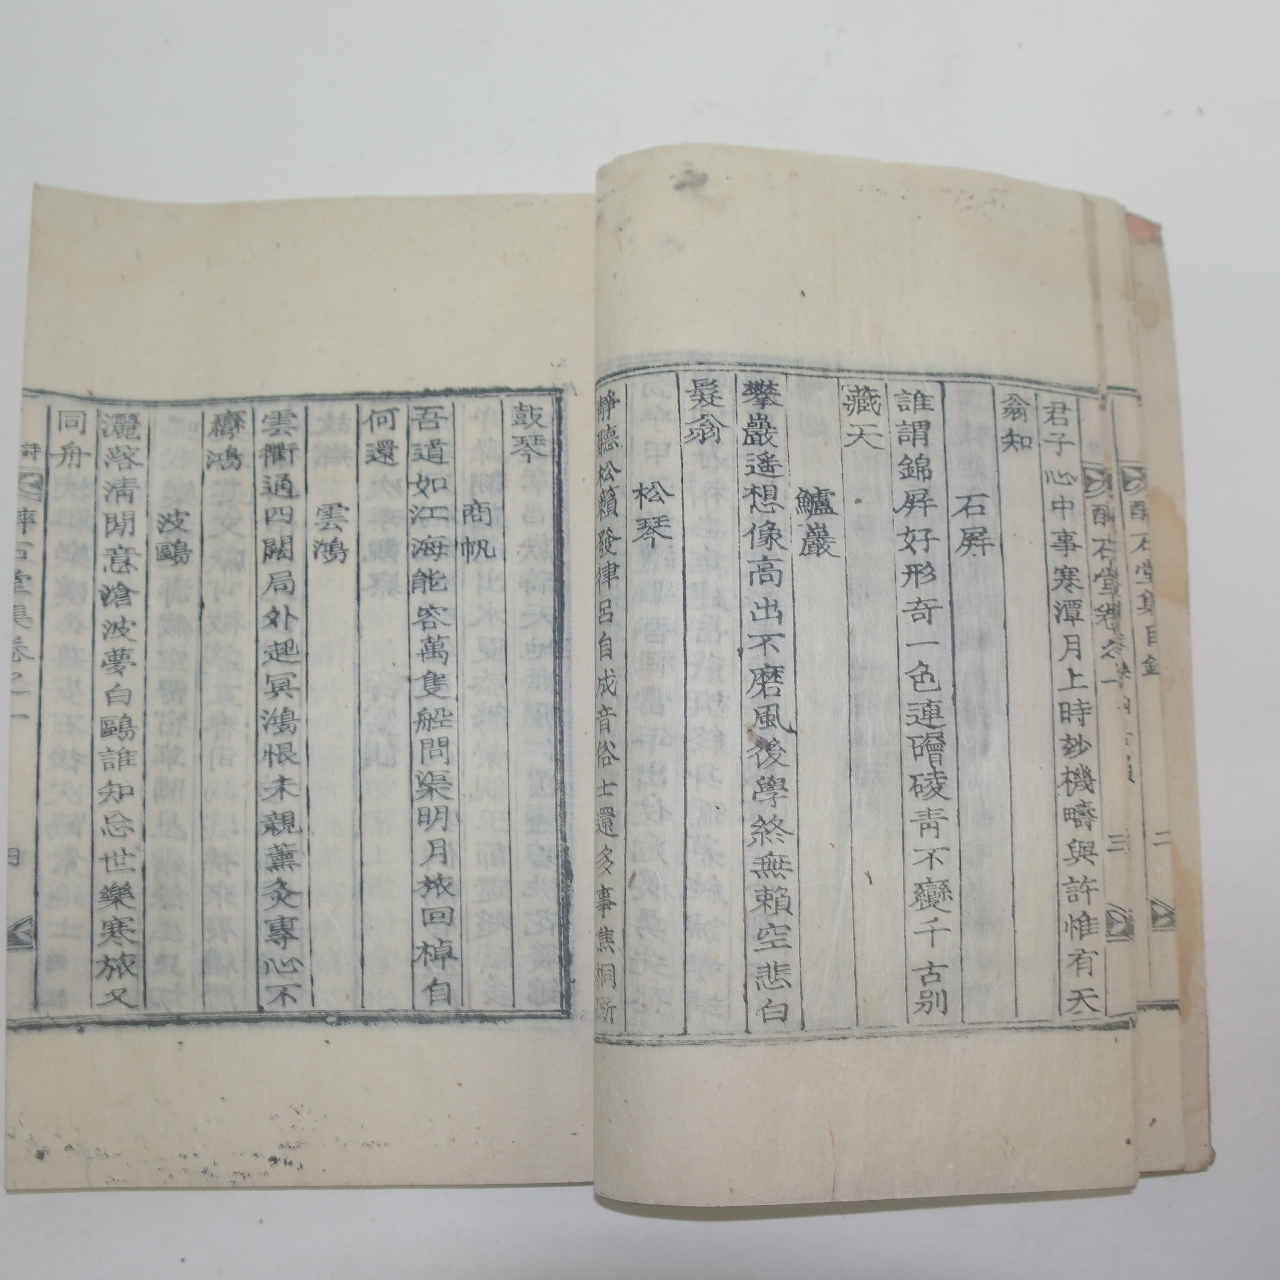 君子心中事寒潭月上時玅機疇與許惟有天
翁知
石屛
誰謂錦屛好形奇一色連磳硊靑不變千古別
藏天
鱸巖
攀巖遙想像高出不磨風後學終無賴空悲白
髮翁
松琴
靜聽松籟發律呂自成音俗士還多事焦桐所
鼓琴
商帆
吾道如江海能容萬隻船問渠明月旅回棹自
何還
雲鴻
雲衢通四闢局外起冥鴻恨未親薰灸專心不
彎鴻
波鷗
灑落淸閒意滄波夢白鷗誰知忘世樂寒旅又
同舟
石堂集目錄
二
石堂
三
詩
堂集卷之一
四